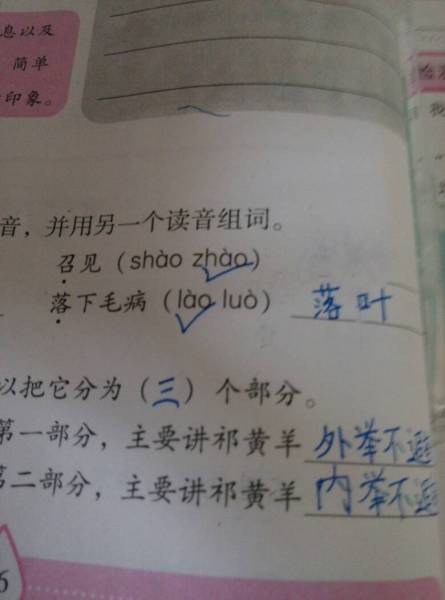 息以及
简单
印象。
音，并用另一个读音组词。
召见（shào zhào）
落下毛病（lào luò） 落叶
以把它分为（三）个部分。
第一部分，主要讲祁黄羊 外举不避
第二部分，主要讲祁黄羊 内举不避
6